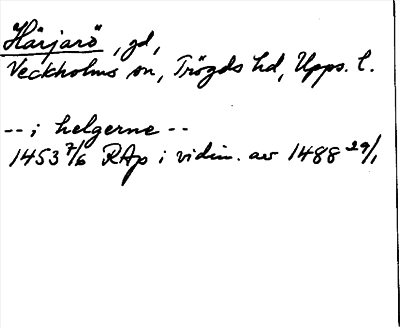 Härjarö, gd,
Veckholms sn, Trögds hd, Upps. l.
-- i helgerne --
1453 7/6 RAp i vidim. av 1488 29/1